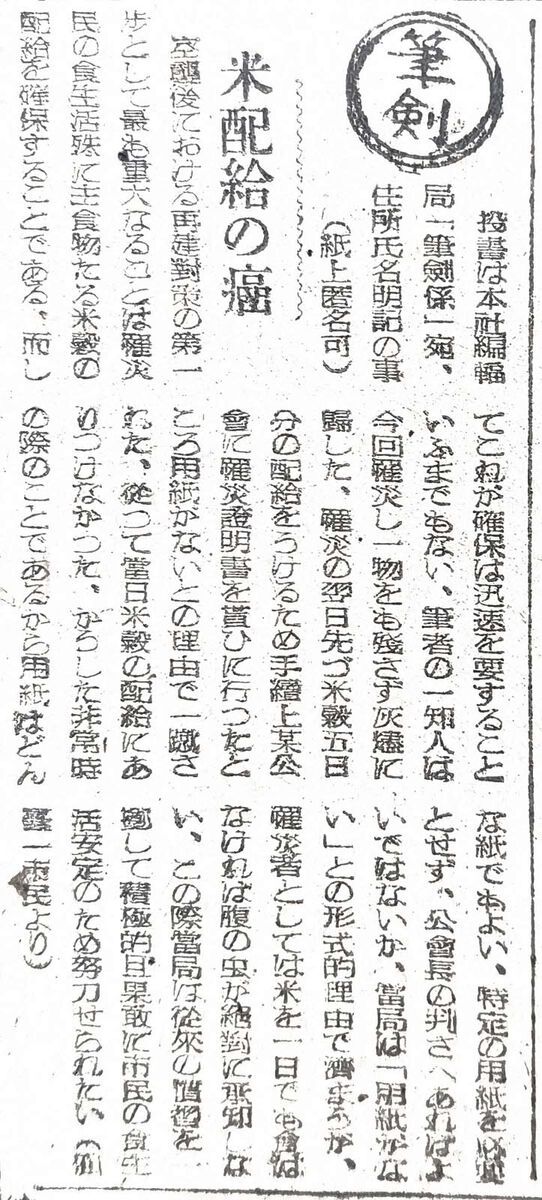 筆剣
投書は本社編輯
局「筆劍係」宛、
住所氏名明記の事
(紙上匿名可)
米配給の癌
空襲後における再建對策の第一
歩として最も重大なることは罹災
民の食生活殊に主食物たる米穀の
配給を確保することである、而し
てこれが確保は迅速を要すること
いふまでもない、筆者の一知人は
今回罹災し一物をも残さず灰燼に
歸した、罹災の翌日先づ米穀五日
分の配給をうけるため手續上某公
會に罹災證明書を貰ひに行つたと
ころ用紙がないとの理由で一蹴さ
れた、從つて當日米穀の配給にあ
りつけなかつた、かうした非常時
の際のことであるから用紙はどん
な紙でもよい、特定の用紙を必要
とせず、公會長の判さへあればよ
いではないか、當局は「用紙がな
い」との形式的理由で濟まうが、
罹災者としては米を一日でも食は
なければ腹の虫が絶對に承知しな
い、この際當局は從來の慣習を一
擲して積極的且果敢に市民の食生
活安定のため努力せられたい(
一市民より)